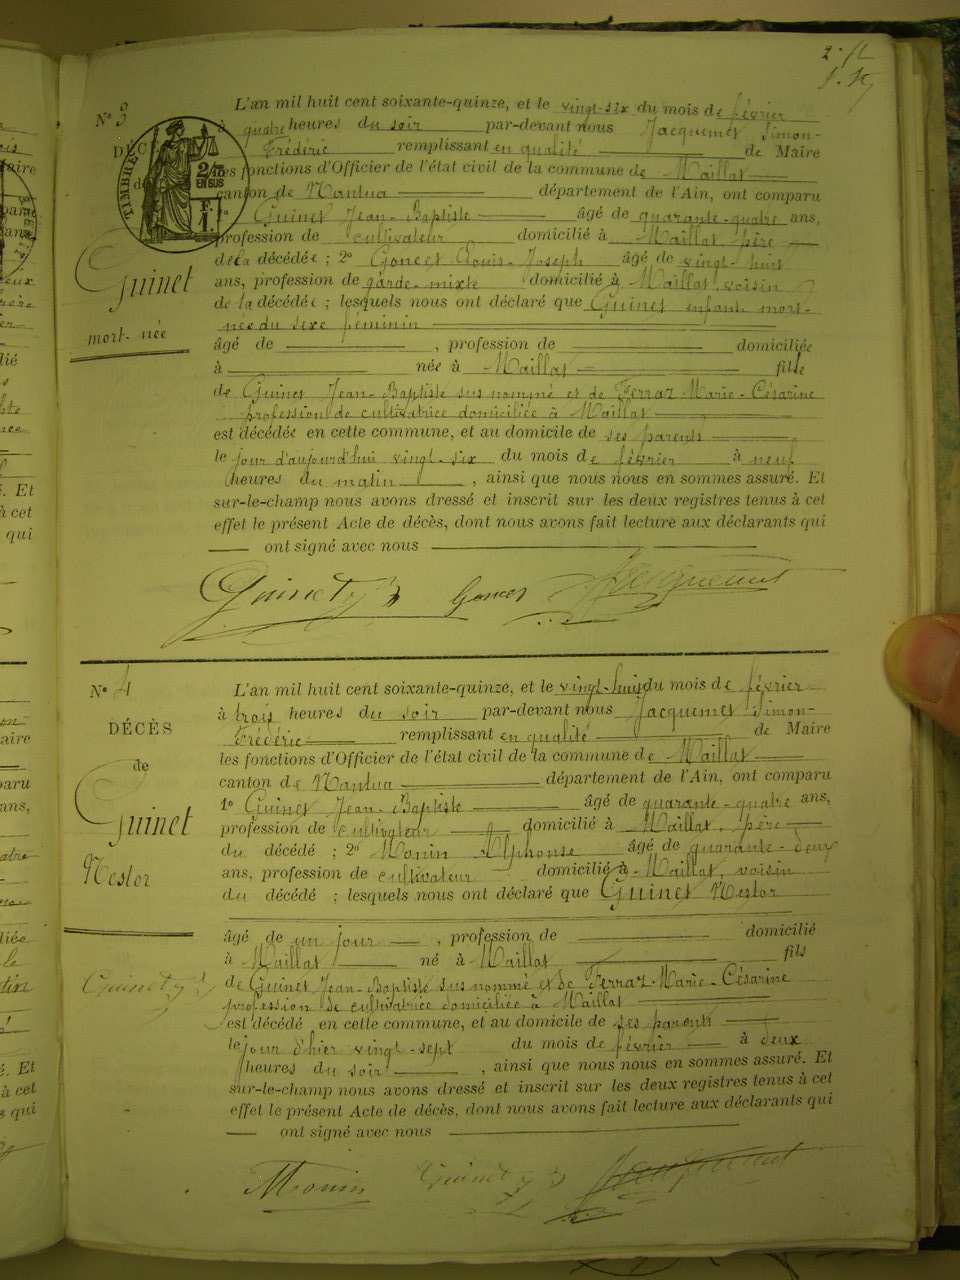 N° 3
DÉC
de
TIMBRE
2/10
EN SUS
F.
1.
Guinet
mort-née
L'an mil huit cent soixante-quinze, et le vingt-six du mois de février
à quatre heures du soir par-devant nous Jacquemet Simon-
Frédéric remplissant en qualité de Maire
les fonctions d'Officier de l'état civil de la commune de Maillat
canton de Nantua département de l'Ain, ont comparu
1° Guinet Jean-Baptiste âgé de quarante-quatre ans,
profession de cultivateur domicilié à Maillat, père
de la décédée ; 2° Goncet Louis-Joseph âgé de vingt-huit
ans, profession de garde-mixte domicilié à Maillat, voisin
de la décédée ; lesquels nous ont déclaré que Guinet enfant mort-
née du sexe féminin
âgé de , profession de domiciliée
à née à Maillat fille
de Guinet Jean-Baptiste sus nommé et de Ferraz Marie-Césarine
profession de cultivatrice domiciliée à Maillat
est décédée en cette commune, et au domicile de ses parents
le jour d'aujourd'hui vingt-six du mois de février à neuf
heures du matin , ainsi que nous nous en sommes assuré. Et
sur-le-champ nous avons dressé et inscrit sur les deux registres tenus à cet
effet le présent Acte de décès, dont nous avons fait lecture aux déclarants qui
ont signé avec nous
Guinet Goncet Jacquemet
N° 4
DÉCÈS
de
Guinet
Nestor
L'an mil huit cent soixante-quinze, et le vingt-huit du mois de février
à trois heures du soir par-devant nous Jacquemet Simon-
Frédéric remplissant en qualité de Maire
les fonctions d'Officier de l'état civil de la commune de Maillat
canton de Nantua département de l'Ain, ont comparu
1° Guinet Jean-Baptiste âgé de quarante-quatre ans,
profession de cultivateur domicilié à Maillat, père
du décédé ; 2° Monin Alphonse âgé de quarante-deux
ans, profession de cultivateur domicilié à Maillat, voisin
du décédé ; lesquels nous ont déclaré que Guinet Nestor
âgé de un jour , profession de domicilié
à Maillat né à Maillat fils
de Guinet Jean-Baptiste sus nommé et de Ferraz Marie-Césarine
profession de cultivatrice domiciliée à Maillat
est décédé en cette commune, et au domicile de ses parents
le jour d'hier vingt-sept du mois de février à deux
heures du soir , ainsi que nous nous en sommes assuré. Et
sur-le-champ nous avons dressé et inscrit sur les deux registres tenus à cet
effet le présent Acte de décès, dont nous avons fait lecture aux déclarants qui
ont signé avec nous
Guinet
Monin Guinet Jacquemet